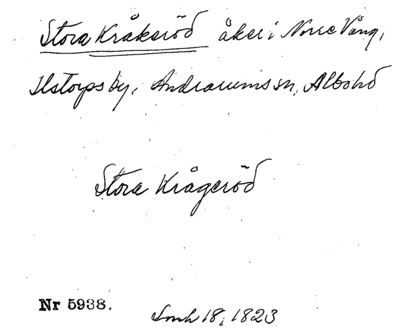 Stora Kråkeröd åker i Norre Vång,
Ilstorps by, Andrarums sn, Albo hd
Stora Krågeröd
Nr 5938.
Smh 18, 1823